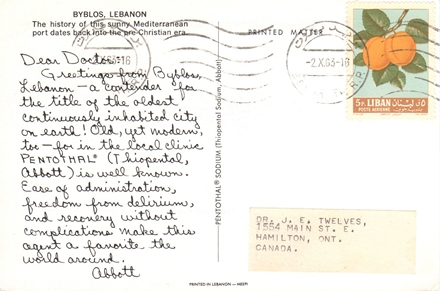 BYBLOS, LEBANON
The history of this sunny Mediterranean
port dates back into the pre-Christian era.
Dear Doctor:
Greetings from Byblos,
Lebanon — a contender for
the title of the oldest
continuously inhabited city
on earth! Old, yet modern,
too — for in the local clinic
PENTOTHAL® (Thiopental,
Abbott) is well known.
Ease of administration,
freedom from delirium,
and recovery without
complications make this
agent a favorite the
world around.
Abbott
PENTOTHAL® SODIUM (Thiopental Sodium, Abbott)
PRINTED MATTER
-2.X.63-16
5P. LIBAN لبنان ٥ق
POSTE AERIENNE
DR. J. E. TWELVES,
1554 MAIN ST. E.
HAMILTON, ONT.
CANADA.
PRINTED IN LEBANON —